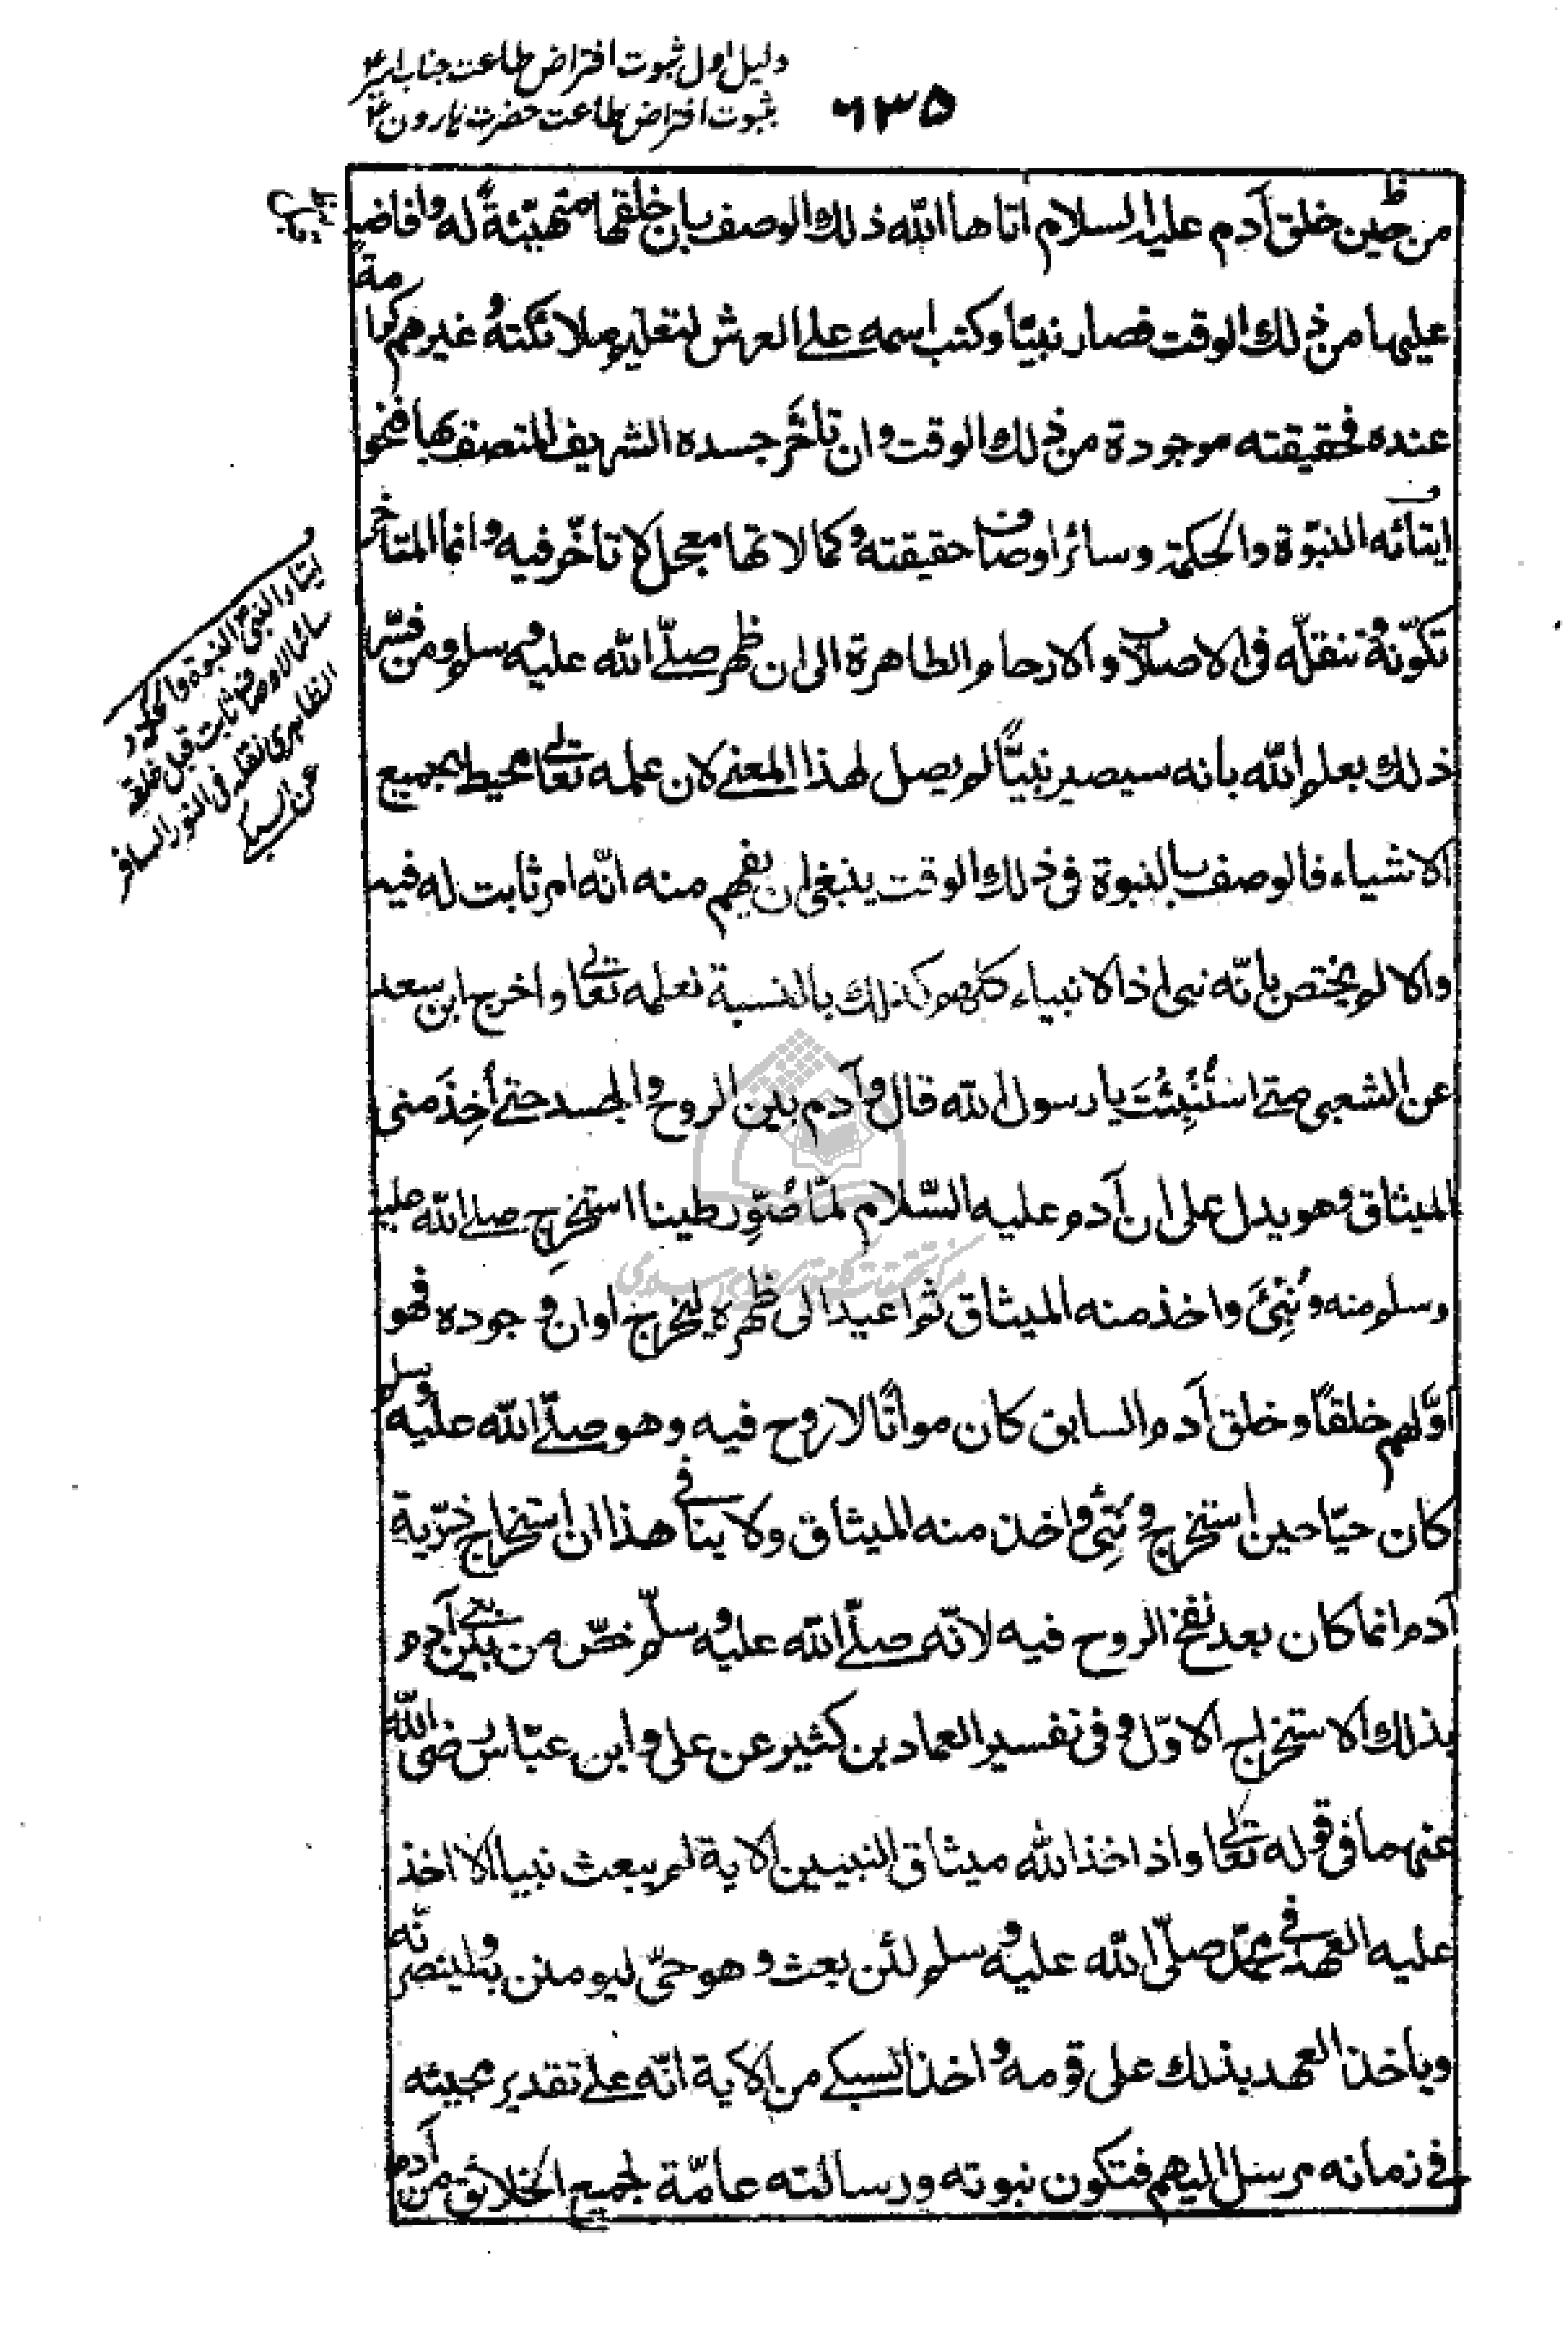 دلیل اول ثبوت افتراض طاعت جناب امیرؑ
ثبوت افتراض طاعت حضرت ہارونؑ
۶۳۵
من طين خلق آدم عليه السلام اتاها الله ذلك الوصف بان خلقها متهيئةً له وافاضه
عليها من ذلك الوقت فصار نبيّا وكتب اسمه على العرش لتعلم ملائكته وغيرهم كرامته
عنده فحقيقته موجودة من ذلك الوقت وان تأخّر جسده الشريف المتصف بها فنحو
ايتائه النبوّة والحكمة وسائر اوصاف حقيقته وكمالاتها معجل لا تأخّر فيه وانما المتأخر
تكوّنه وتنقلّه في الاصلاب والارحام الطاهرة الى ان ظهر صلّى الله عليه وسلم ومن فسّر
ذلك بعلم الله بانه سيصير نبيّاً لم يصل لهذا المعنى لان علمه تعالى محيط بجميع
الاشياء فالوصف بالنبوة في ذلك الوقت ينبغي ان يفهم منه انّه امر ثابت له فيه
والا لم يختص بانّه نبي اذ الانبياء كلهم كذلك بالنسبة لعلمه تعالى واخرج ابن سعد
عن الشعبي متى استُنْبِئْتَ يا رسول الله قال وآدم بين الروح والجسد حتى أُخِذَ مني
الميثاق وهو يدل على ان آدم عليه السّلام لمّا صُوِّر طينا استخرِج صلى الله عليه
وسلم منه ونُبِّئَ واخذ منه الميثاق ثم اعيد الى ظهره ليخرج اوان وجوده فهو
اوّلهم خلقًا وخلق آدم السابق كان مواتًا لا روح فيه وهو صلّى الله عليه وسلم
كان حيّا حين استخرج ونُبِّئ واخذ منه الميثاق ولا ينافي هذا ان استخراج ذرّية
آدم انما كان بعد نفخ الروح فيه لانّه صلّى الله عليه وسلّم خصّ من بين بني آدم
بذلك الاستخراج الاوّل وفي تفسير العماد بن كثير عن علي وابن عبّاس رضي الله
عنهما في قوله تعالى واذ اخذ الله ميثاق النبيين الاية لم يبعث نبيا الا اخذ
عليه العهد في محمّد صلّى الله عليه وسلم لئن بعث وهو حيّ ليومنن به ولينصرنّه
وياخذ العهد بذلك على قومه واخذ السبكي من الآية انّه على تقدير مجيئه
في زمانه مرسل اليهم فتكون نبوته ورسالته عامّة لجميع الخلائق من آدم
ایتاء النبیؐ النبوة والحکمة و
سائر الاوصاف ثابت قبل خلقه
الظاہری نقله فی النور السافر
عن السبکی